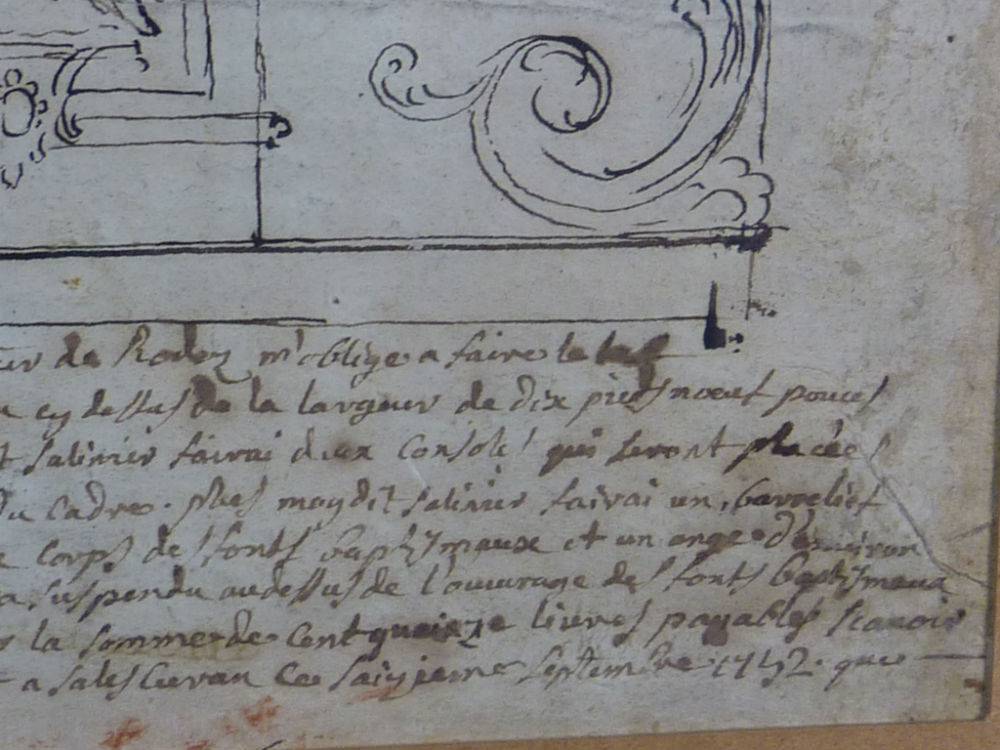 ur de Rodez m'oblige a faire le
cy dessus de la largeur de dix pieds noeuf pouces
t salinier fairai deux consoles qui seront placées
du cadre. plus moydit salinier fairai un, barrelief
e corps des fonts baptismaux et un ange d'environ
a suspendu au dessus de l'ouurage des fonts baptismaux
r la somme de cent quainze liures payables scauoir
t a salesCuran ce saizieme septembre 1752. que